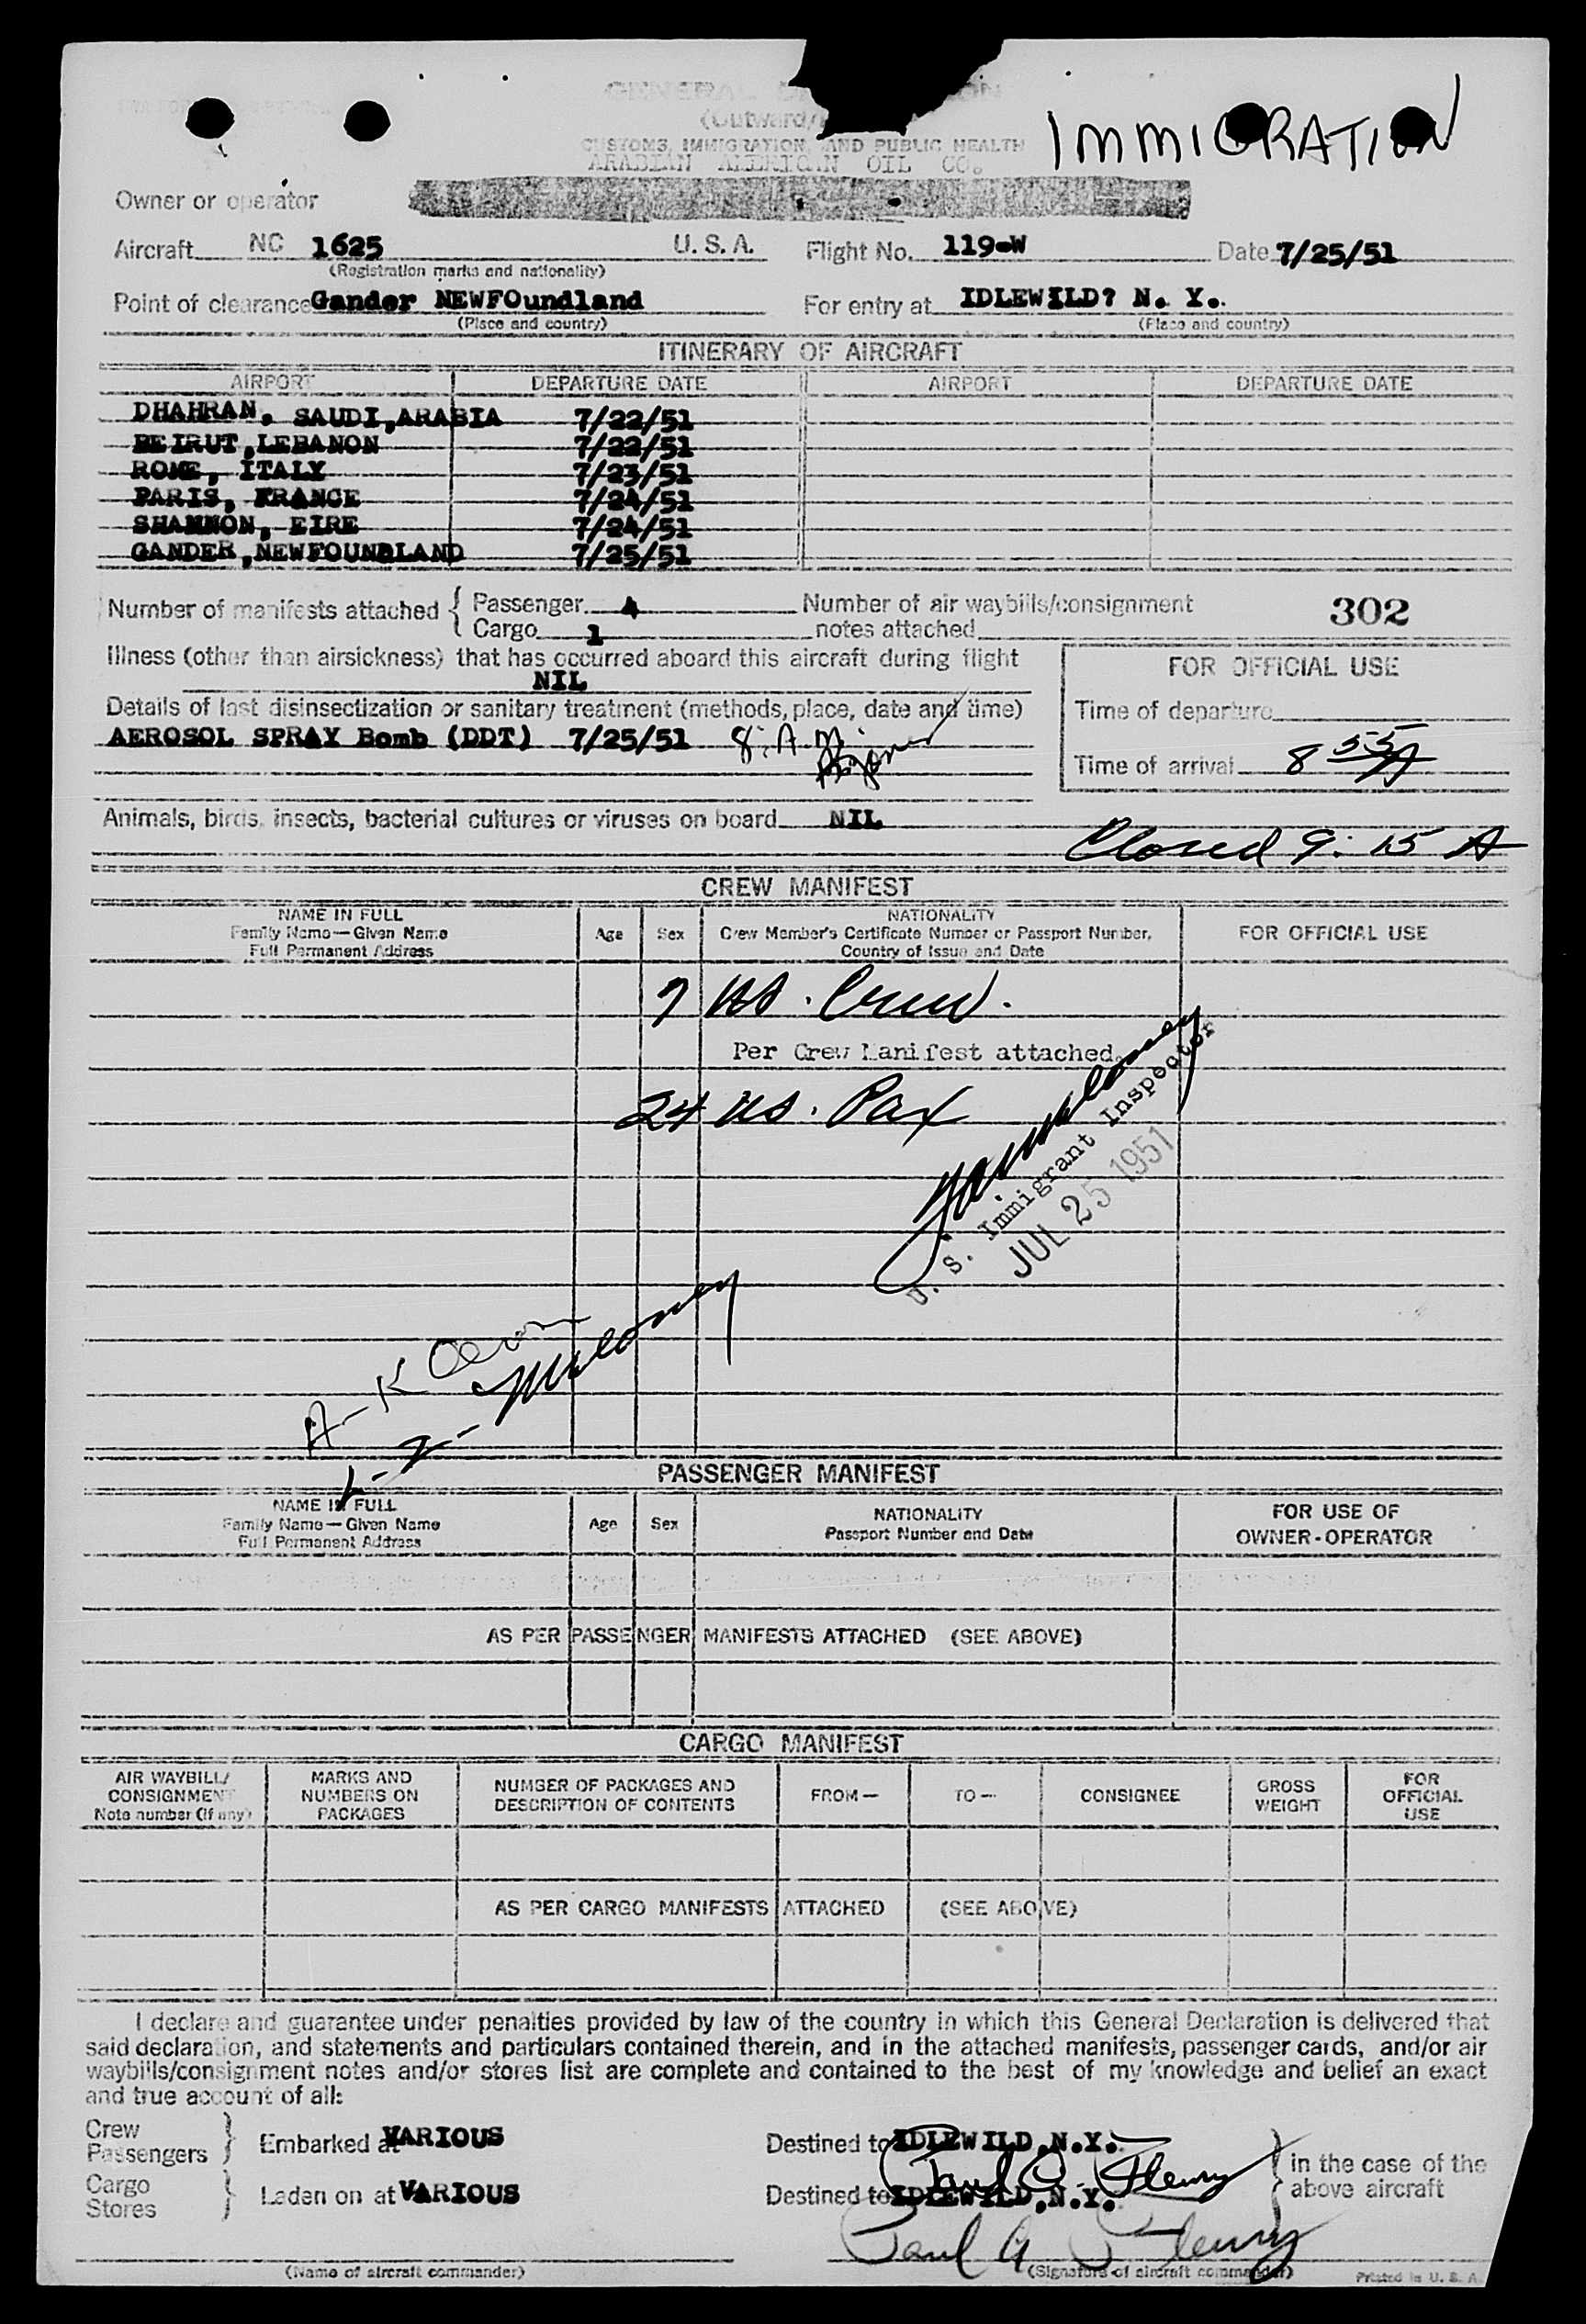 GENERAL
(Outward/
CUSTOMS, IMMIGRATION, AND PUBLIC HEALTH
IMMIGRATION
ARABIAN AMERICAN OIL CO.
Owner or operator
Aircraft NC 1625 U. S. A. Flight No. 119-W Date 7/25/51
(Registration marks and nationality)
Point of clearance Gander NEWFOundland For entry at IDLEWILD? N. Y.
(Place and country) (Place and country)
ITINERARY OF AIRCRAFT
AIRPORT DEPARTURE DATE AIRPORT DEPARTURE DATE
DHAHRAN. SAUDI,ARABIA 7/22/51
BEIRUT,LEBANON 7/22/51
ROME, ITALY 7/23/51
PARIS, FRANCE 7/24/51
SHANNON, EIRE 7/24/51
GANDER,NEWFOUNDLAND 7/25/51
Number of manifests attached { Passenger 4 Number of air waybills/consignment 302
Cargo 1 notes attached
Illness (other than airsickness) that has occurred aboard this aircraft during flight
NIL
FOR OFFICIAL USE
Details of last disinsectization or sanitary treatment (methods, place, date and time)
Time of departure
AEROSOL SPRAY Bomb (DDT) 7/25/51 8: A.M.
Time of arrival 8 55 A
Animals, birds, insects, bacterial cultures or viruses on board NIL
Closed 9:15 A
CREW MANIFEST
NAME IN FULL
Family Name—Given Name
Full Permanent Address
Age Sex
NATIONALITY
Crew Member's Certificate Number or Passport Number,
Country of Issue and Date
FOR OFFICIAL USE
7 US. Crew.
Per Crew Manifest attached.
24 US. Pax
U. S. Immigrant Inspector
JUL 25 1951
A-K
L-Z- Muloney
PASSENGER MANIFEST
NAME IN FULL
Family Name—Given Name
Full Permanent Address
Age Sex
NATIONALITY
Passport Number and Date
FOR USE OF
OWNER-OPERATOR
AS PER PASSENGER MANIFESTS ATTACHED (SEE ABOVE)
CARGO MANIFEST
AIR WAYBILL/
CONSIGNMENT
Note number (if any)
MARKS AND
NUMBERS ON
PACKAGES
NUMBER OF PACKAGES AND
DESCRIPTION OF CONTENTS
FROM— TO— CONSIGNEE
GROSS
WEIGHT
FOR
OFFICIAL
USE
AS PER CARGO MANIFESTS ATTACHED (SEE ABOVE)
I declare and guarantee under penalties provided by law of the country in which this General Declaration is delivered that
said declaration, and statements and particulars contained therein, and in the attached manifests, passenger cards, and/or air
waybills/consignment notes and/or stores list are complete and contained to the best of my knowledge and belief an exact
and true account of all:
Crew
Passengers } Embarked at VARIOUS Destined to IDLEWILD,N.Y.
Paul G. Fleury
in the case of the
above aircraft
Cargo
Stores } Laden on at VARIOUS Destined to IDLEWILD,N.Y.
Paul G Fleury
(Name of aircraft commander) (Signature of aircraft commander) Printed in U. S. A.